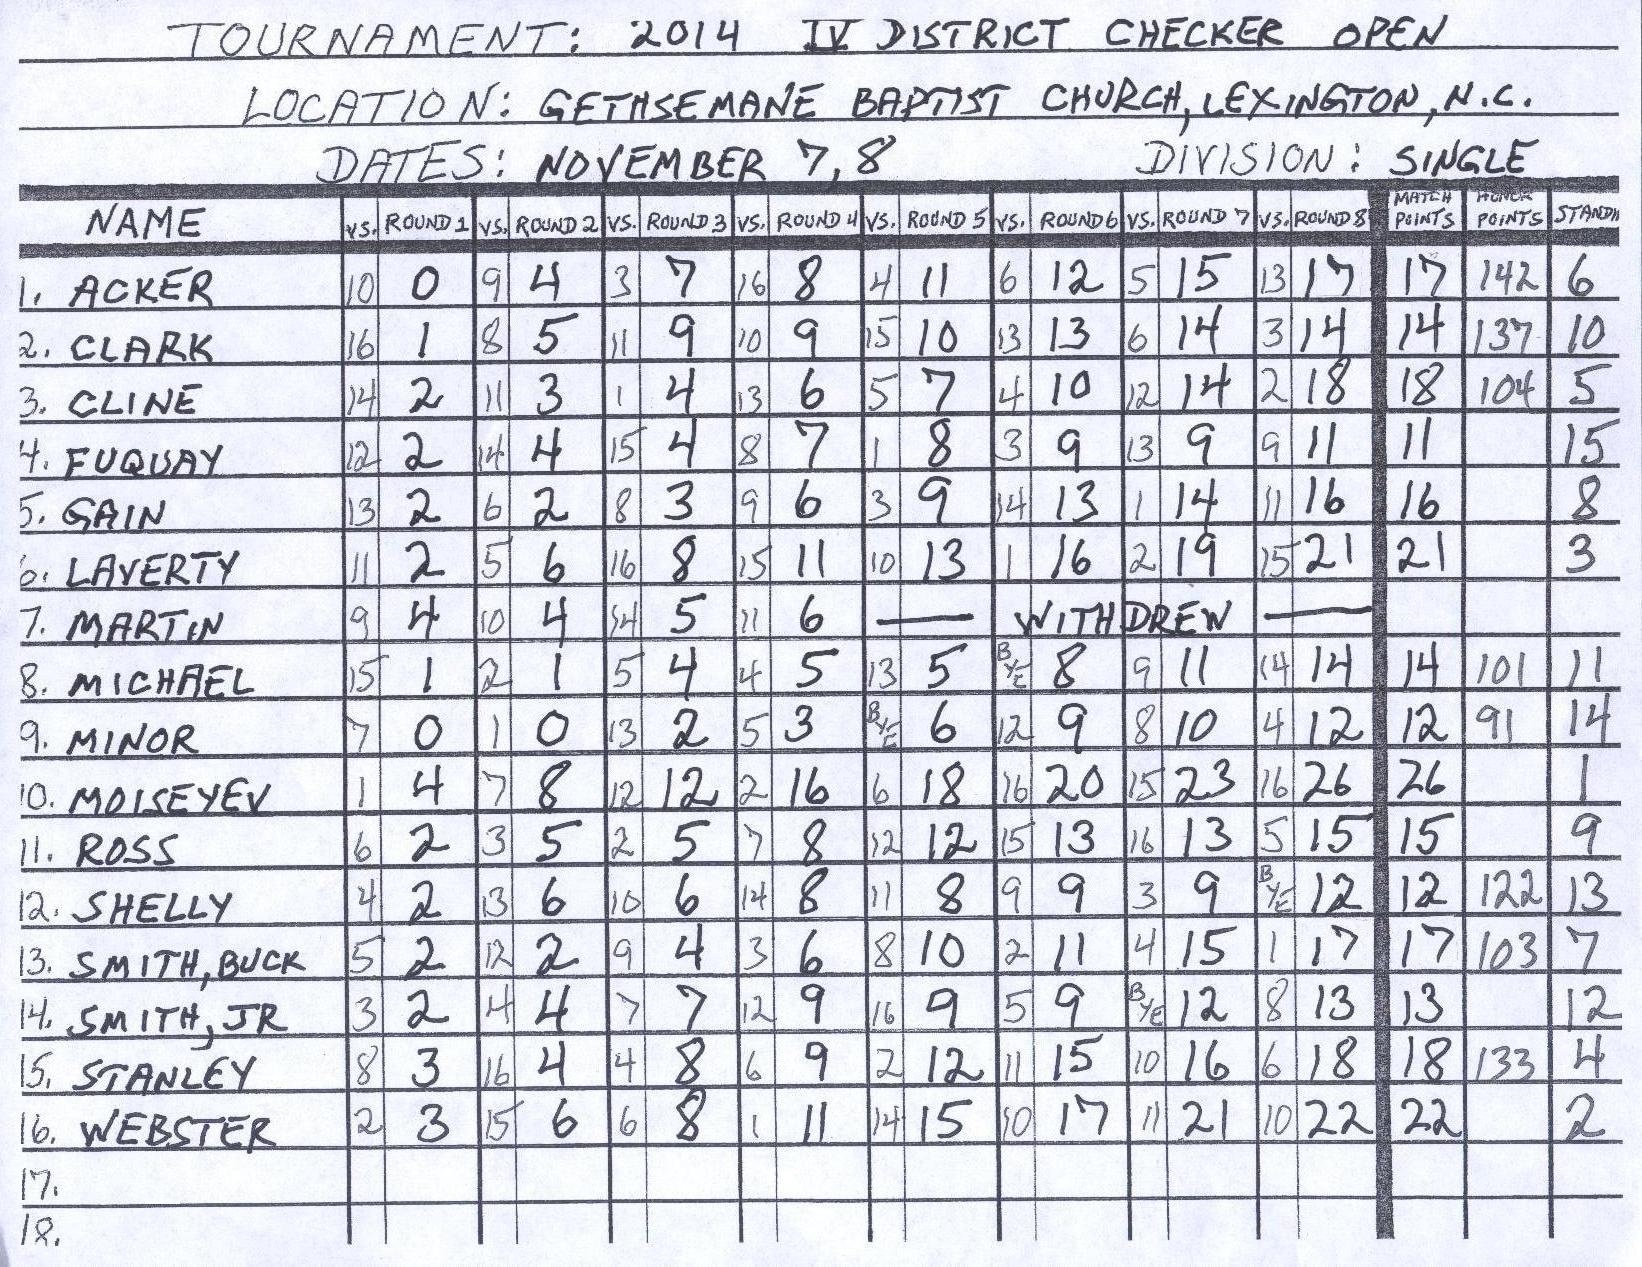 TOURNAMENT: 2014 IV DISTRICT CHECKER OPEN
LOCATION: GETHSEMANE BAPTIST CHURCH, LEXINGTON, N.C.
DATES: NOVEMBER 7, 8 DIVISION: SINGLE
NAME VS. ROUND 1 VS. ROUND 2 VS. ROUND 3 VS. ROUND 4 VS. ROUND 5 VS. ROUND 6 VS. ROUND 7 VS. ROUND 8 MATCH POINTS HONOR POINTS STANDIN
1. ACKER 10 0 9 4 3 7 16 8 4 11 6 12 5 15 13 17 17 142 6
2. CLARK 16 1 8 5 11 9 10 9 15 10 13 13 6 14 3 14 14 137 10
3. CLINE 14 2 11 3 1 4 13 6 5 7 4 10 12 14 2 18 18 104 5
4. FUQUAY 12 2 14 4 15 4 8 7 1 8 3 9 13 9 9 11 11 15
5. GAIN 13 2 6 2 8 3 9 6 3 9 14 13 1 14 11 16 16 8
6. LAVERTY 11 2 5 6 16 8 15 11 10 13 1 16 2 19 15 21 21 3
7. MARTIN 9 4 10 4 14 5 11 6 — WITHDREW —
8. MICHAEL 15 1 2 1 5 4 4 5 13 5 BYE 8 9 11 14 14 14 101 11
9. MINOR 7 0 1 0 13 2 5 3 BYE 6 12 9 8 10 4 12 12 91 14
10. MOISEYEV 1 4 7 8 12 12 2 16 6 18 16 20 15 23 16 26 26 1
11. ROSS 6 2 3 5 2 5 7 8 12 12 15 13 16 13 5 15 15 9
12. SHELLY 4 2 13 6 10 6 14 8 11 8 9 9 3 9 BYE 12 12 122 13
13. SMITH, BUCK 5 2 12 2 9 4 3 6 8 10 2 11 4 15 1 17 17 103 7
14. SMITH, JR 3 2 4 4 7 7 12 9 16 9 5 9 BYE 12 8 13 13 12
15. STANLEY 8 3 16 4 4 8 6 9 2 12 11 15 10 16 6 18 18 133 4
16. WEBSTER 2 3 15 6 6 8 1 11 14 15 10 17 11 21 10 22 22 2
17.
18.